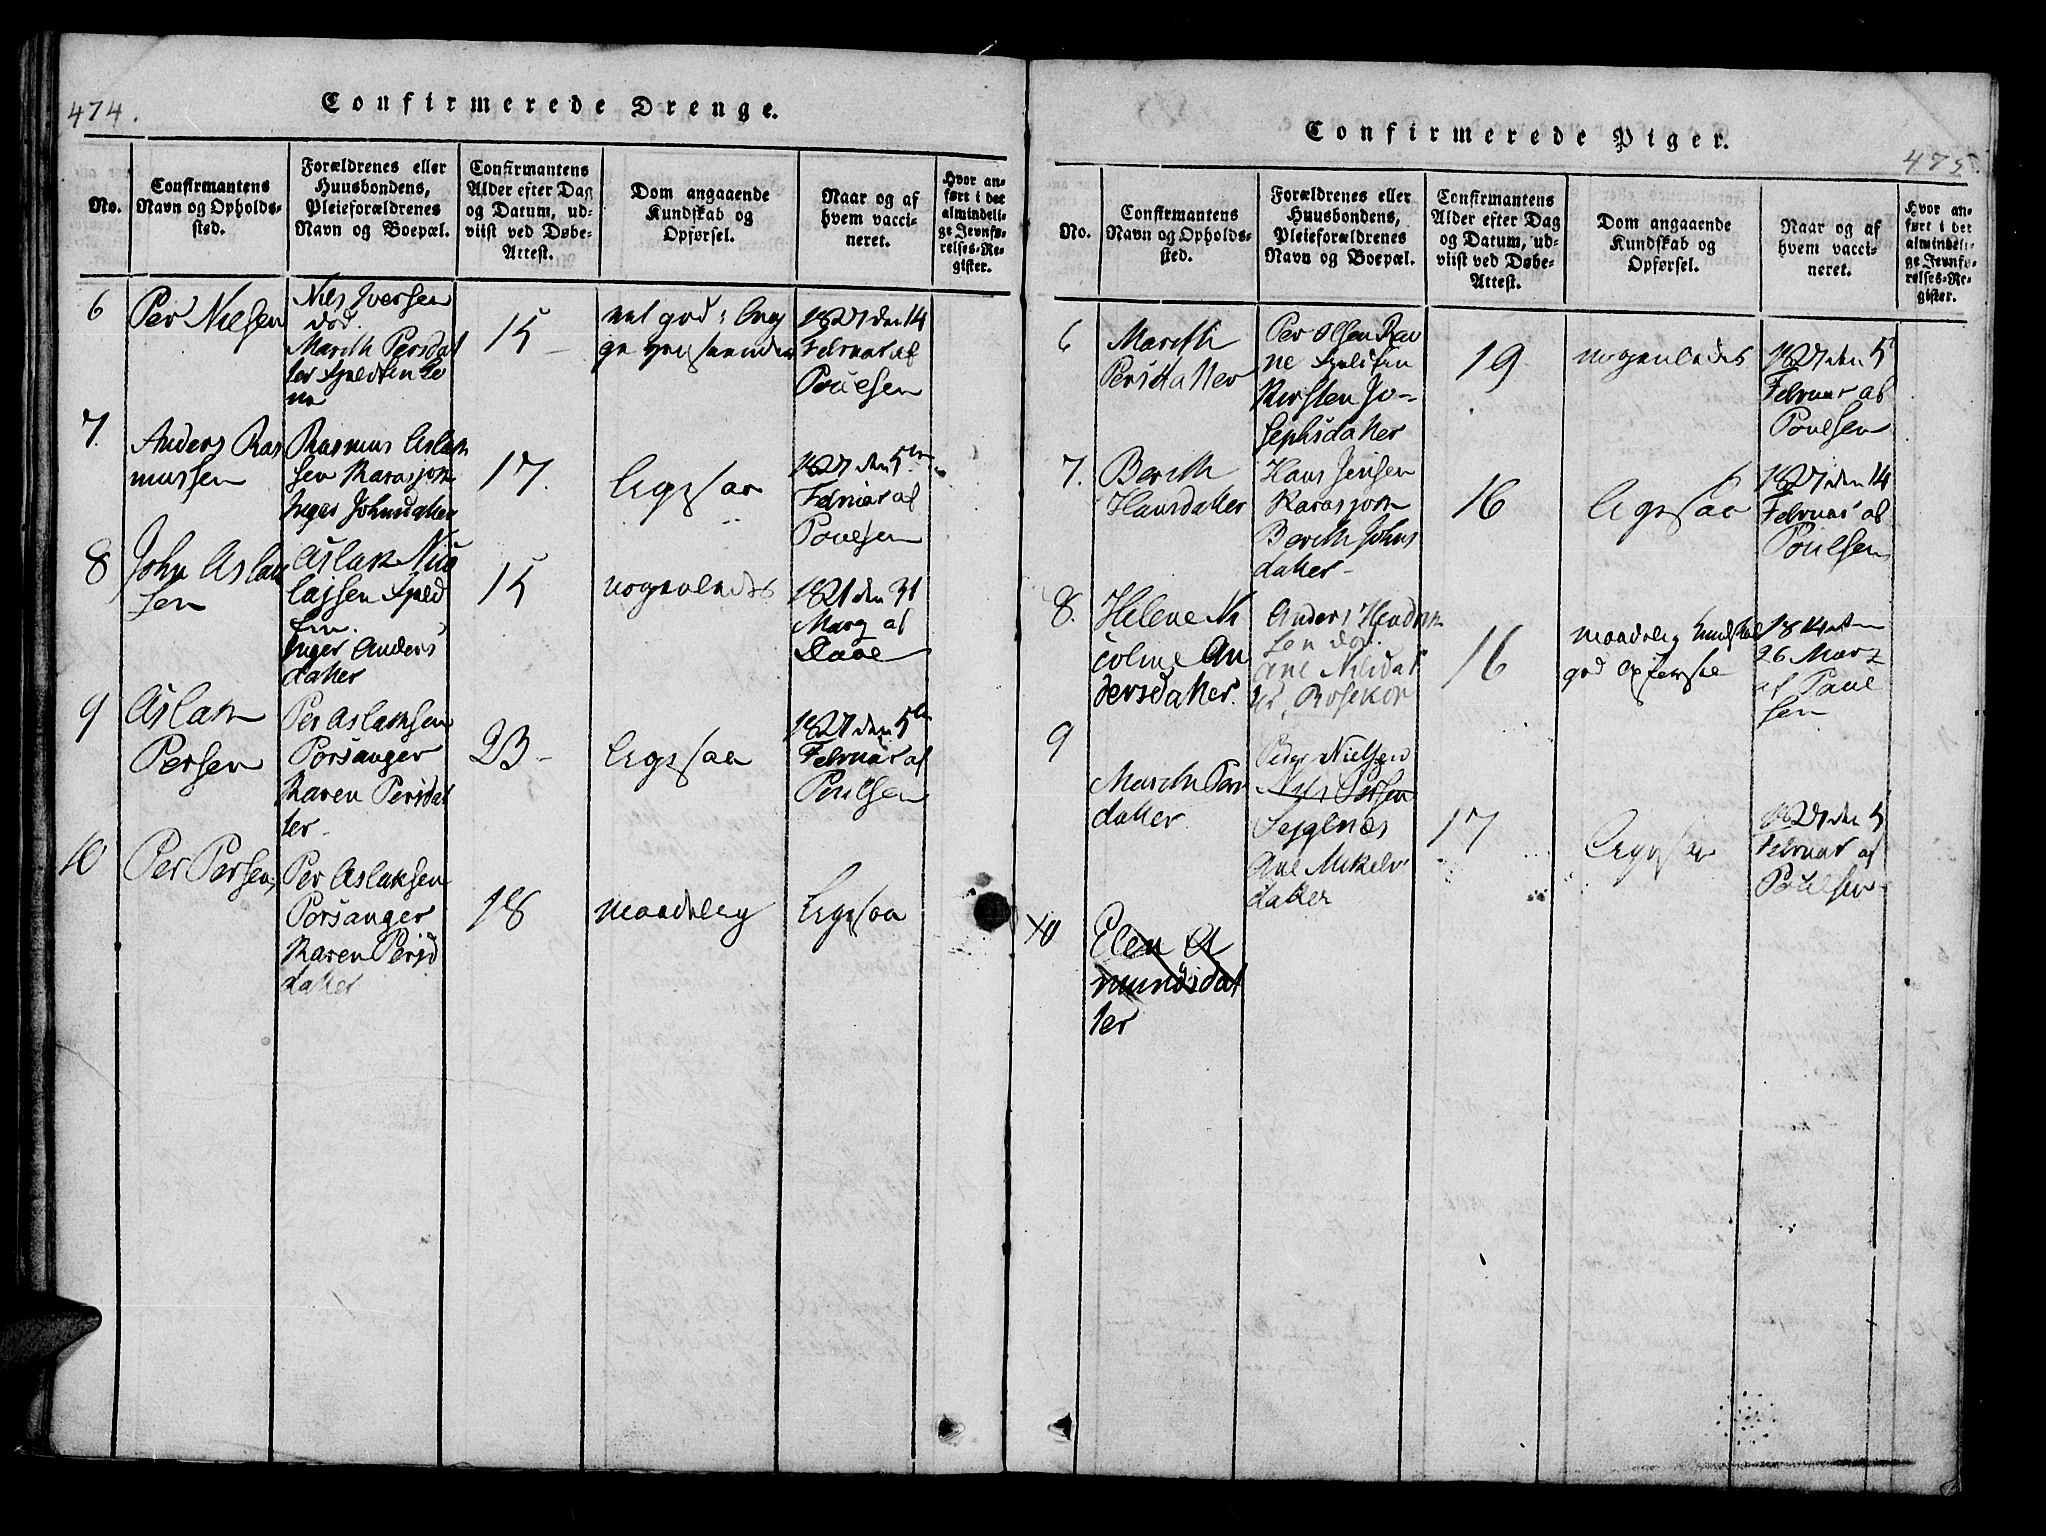 474.
Confirmerede Drenge.
No.
Confirmantens
Navn og Opholds-
sted.
Forældrenes eller
Huusbondens,
Pleieforældrenes
Navn og Boepæl.
Confirmantens
Alder efter Dag
og Datum, ud-
viist ved Døbe-
Attest.
Dom angaaende
Kundskab og
Opførsel.
Naar og af
hvem vacci-
neret.
Hvor an-
ført i det
almindeli-
ge Jevnfø-
relses-Re-
gister.
6
Per Nielsen
Niels Iversen
død.
Marith Persdat
ter
15
1821 den 14
Februar af
Poulsen
7.
Anders Ras
mussen
Rasmus Aslak
sen Karasjok
Inger Johnsdatter
17.
Ligesaa
1821 den 5te
Februar af
Poulsen
8
John Aslak
sen
Aslak Nic
lajsen Fjeld
fin.
Inger Anders
datter
15
nogenledes
1821 den 31
Marz af
9
Aslak
Persen
Per Aslaksen
Porsanger
Karen Persdat
ter
23
Ligesaa
1821 den 5te
Februar af
Poulsen
10
Per Persen
Per Aslaksen
Porsanger
Karen Persd
datter
18
maadelig
Ligesaa
Confirmerede Piger.
475.
No.
Confirmantens
Navn og Opholds-
sted.
Forældrenes eller
Huusbondens,
Pleieforældrenes
Navn og Boepæl.
Confirmantens
Alder efter Dag
og Datum, ud-
viist ved Døbe-
Attest.
Dom angaaende
Kundskab og
Opførsel.
Naar og af
hvem vacci-
neret.
Hvor an-
ført i det
almindeli-
ge Jevnfø-
relses-Re-
gister.
6
Marith
Persdatter
Per Olsen Rav
ne Fjeldfin
Kirsten Jo-
sephsdatter
19
nogenledes
1821 den 5te
Februar af
Poulsen
7.
Berith
Hansdatter
Hans Jensen
Karasjok
Berith Johns
datter
16
Ligesaa
1821 den 14
Februar af
Poulsen
8.
Helene Ni
coline An
dersdatter.
Anders Hendrik
sen død.
Ane Nilsdat
ter,
16
maadelig Kundskab
god Opførsel
1814 den
26 Marz
af Poul
sen
9
Marith Pers
datter
Peder Nielsen
Nils Persen
Ane Mikels
datter
17
Ligesaa
1821 den 5
Februar af
Poulsen
10
Elen A
mundsdat
ter